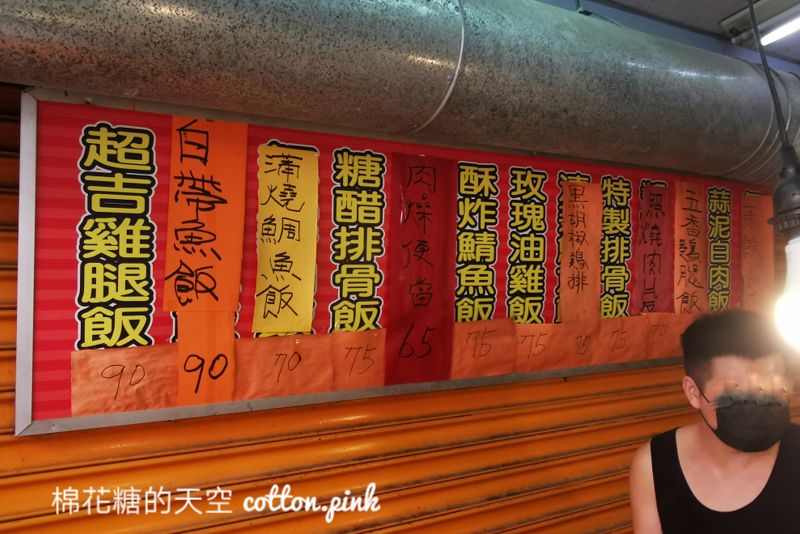 超吉雞腿飯
90
白帶魚飯
90
蒲燒鯛魚飯
70
糖醋排骨飯
75
肉燥便當
65
酥炸鯖魚飯
75
玫瑰油雞飯
75
黑胡椒鷄排
75
特製排骨飯
75
照燒肉片
70
五香鷄腿飯
蒜泥白肉飯
棉花糖的天空 cotton.pink